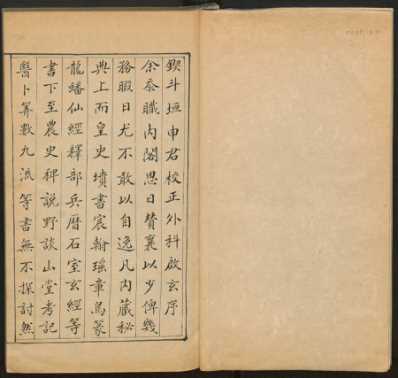 鍥斗垣申君校正外科啟玄序
余忝職內閣思日贊襄以少俾幾
務暇日尤不敢以自逸凡內藏秘
典上而皇史墳書宸翰瑶章鳥篆
龍蟠仙經釋部兵曆石室玄經等
書下至農史稗說野談山堂考記
醫卜筭數九流等書無不探討然